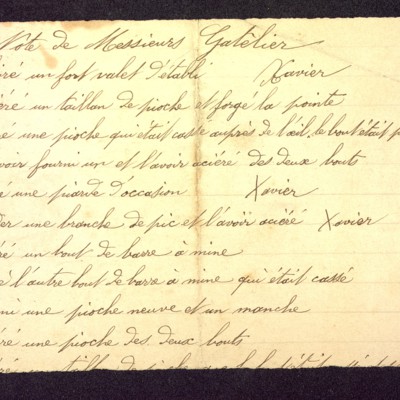 Note de Messieurs Gatêlier
un fort valet d'établi Xavier
un taillan de pioche et forgé la pointe
une pioche qui était cassé auprès de l'œil. le bout était
fourni un et l'avoir aciéré des deux bouts
une piarde d'occasion Xavier
une branche de pic et l'avoir aciéré Xavier
un bout de barre à mine
l'autre bout de barre à mine qui était cassé
une pioche neuve et un manche
une pioche des deux bouts